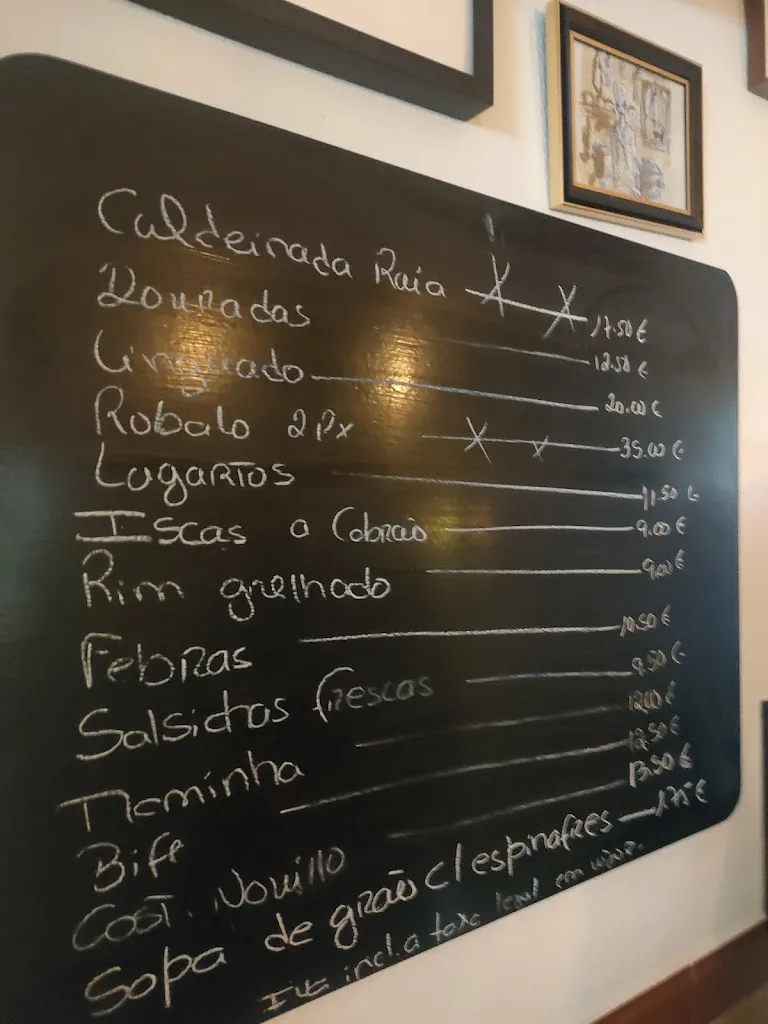 Caldeirada Raia X X 17.50 €
Douradas 12.50 €
Linguado 20.00 €
Robalo 2 Px X X 35.00 €
Lagartos 11.50 €
Iscas a Cobrão 9.00 €
Rim grelhado 9.00 €
Febras 10.50 €
Salsichas frescas 9.50 €
Maminha 12.00 €
Bife 12.50 €
Cost. Novilho 13.50 €
Sopa de grão c/ espinafres 1.75 €
Iva incl. a taxa legal em vigor.